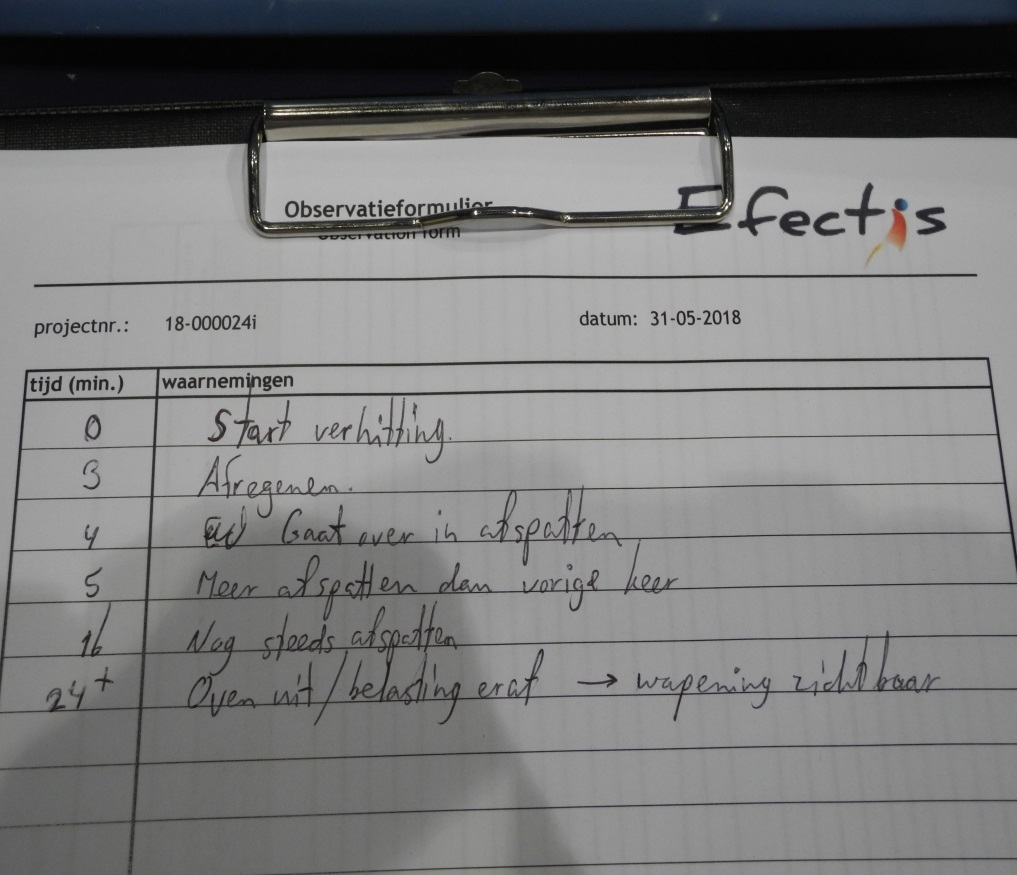 Observatieformulier
Observation form
Efectis
projectnr.: 18-000024i datum: 31-05-2018
tijd (min.) waarnemingen
0 Start verhitting.
3 Afregenen.
4 Gaat over in afspatten
5 Meer afspatten dan vorige keer
16 Nog steeds afspatten
24+ Oven uit/belasting eraf → wapening zichtbaar